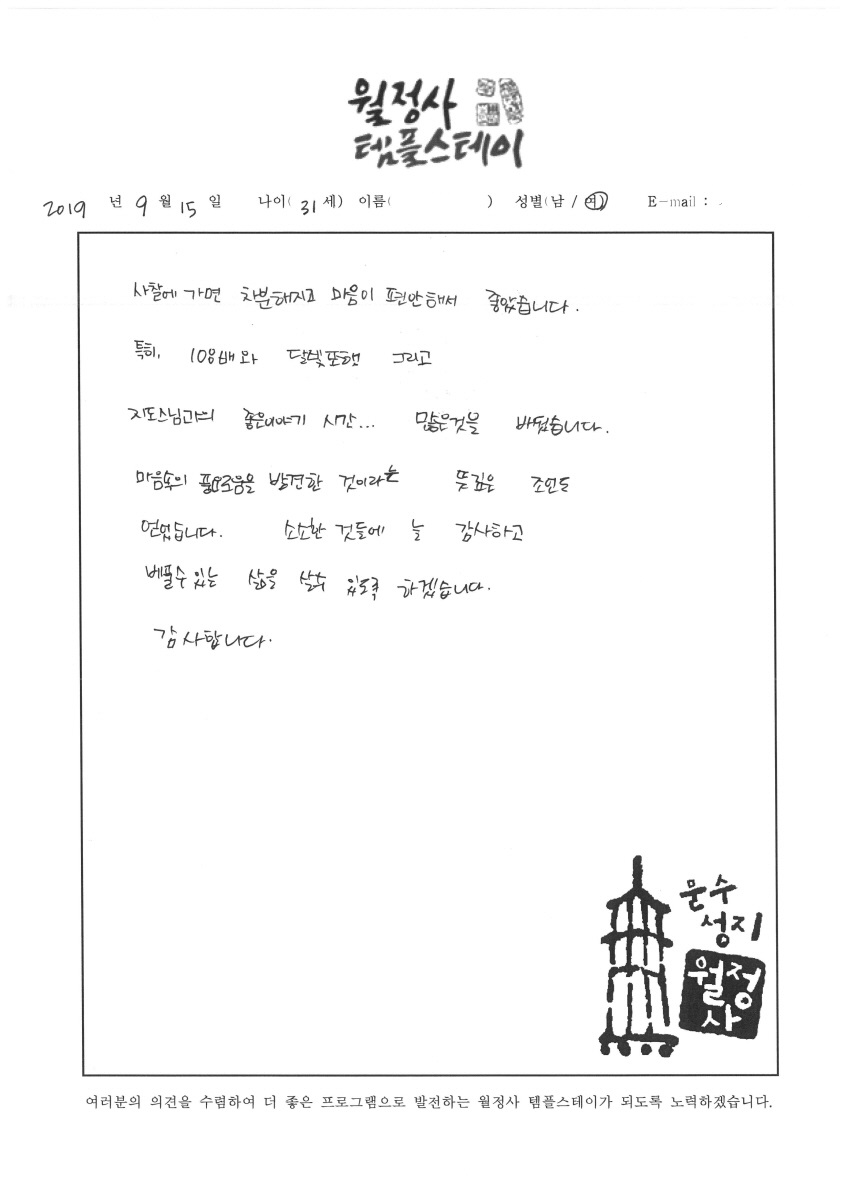 월정사
템플스테이
2019 년 9 월 15 일 나이( 31 세) 이름( ) 성별(남 / 여) E-mail :
사찰에 가면 차분해지고 마음이 편안해서 좋았습니다.
특히, 108배와 달빛포행 그리고
지도스님과의 좋은이야기 시간... 많은것을 배웠습니다.
마음속의 풍요로움을 발견한 것이라는 뜻깊은 조언도
얻었습니다. 소소한 것들에 늘 감사하고
베풀수 있는 삶을 살수 있도록 하겠습니다.
감사합니다.
문수
성지
월정
사
여러분의 의견을 수렴하여 더 좋은 프로그램으로 발전하는 월정사 템플스테이가 되도록 노력하겠습니다.